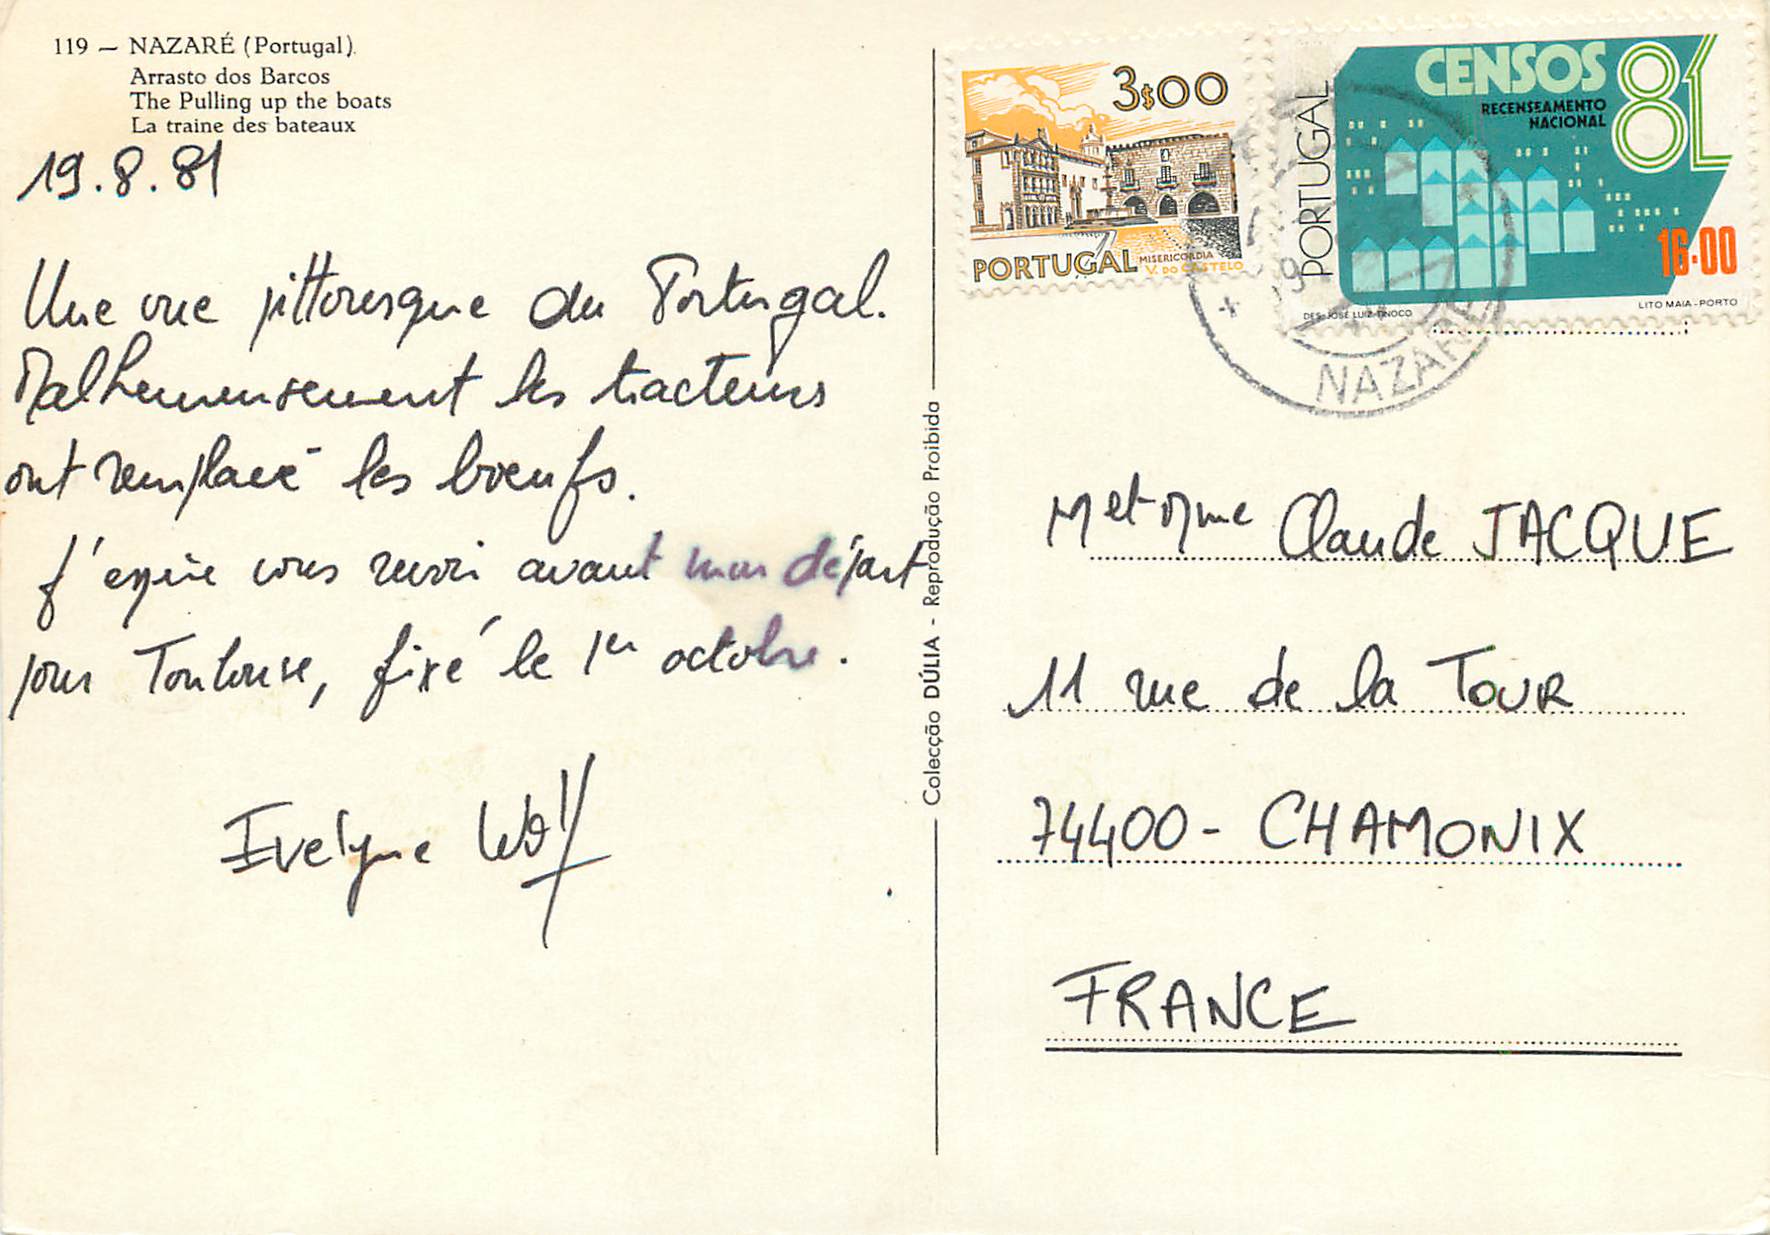 119 — NAZARÉ (Portugal)
Arrasto dos Barcos
The Pulling up the boats
La traine des bateaux
19.8.81
Une vue pittoresque du Portugal.
Malheureusement les tracteurs
ont remplacé les boeufs.
J'espère vous revoir avant mon départ
pour Toulouse, fixé le 1er octobre.
Evelyne Wolf
Colecção DÚLIA - Reprodução Proibida
3$00
MISERICORDIA
PORTUGAL V. DO CASTELO
CENSOS 81
RECENSEAMENTO
NACIONAL
PORTUGAL
16·00
DES. JOSÉ LUIZ TINOCO
LITO MAIA - PORTO
NAZARÉ
M et Mme Claude JACQUE
11 rue de la TOUR
74400 - CHAMONIX
FRANCE